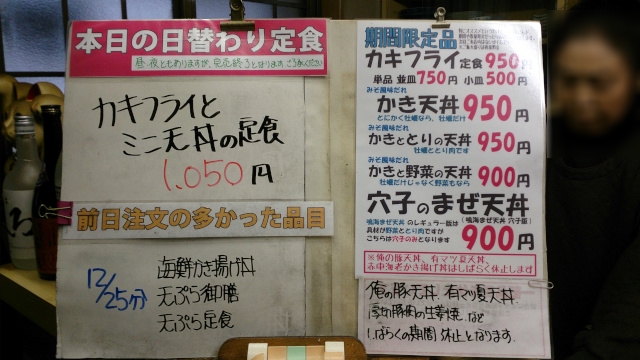 本日の日替わり定食
昼、夜ともありますが、完売終了となります。ご了承ください
カキフライと
ミニ天丼の定食
1,050円
前日注文の多かった品目
12/25分
海鮮かき揚げ丼
天ぷら御膳
天ぷら定食
期間限定品
カキフライ定食950円
単品 並皿750円 小皿500円
みそ風味だれ
かき天丼950円
とにかく牡蠣なら、牡蠣だけ
みそ風味だれ
かきととりの天丼950円
牡蠣ととり肉です
みそ風味だれ
かきと野菜の天丼900円
牡蠣だけじゃなく野菜もなら
穴子のまぜ天丼
鳴海まぜ天丼 のレギュラー版は
(鳴海まぜ天丼 穴子版)
具材が野菜ととり肉ですが
こちらは穴子のみとなります
900円
※俺の豚天丼、有マツ夏天丼、
赤車海老かき揚げ丼はしばらく休止します
俺の豚天丼、有マツ夏天丼、
厚切豚肉の生姜焼、など
しばらくの期間 休止となります。